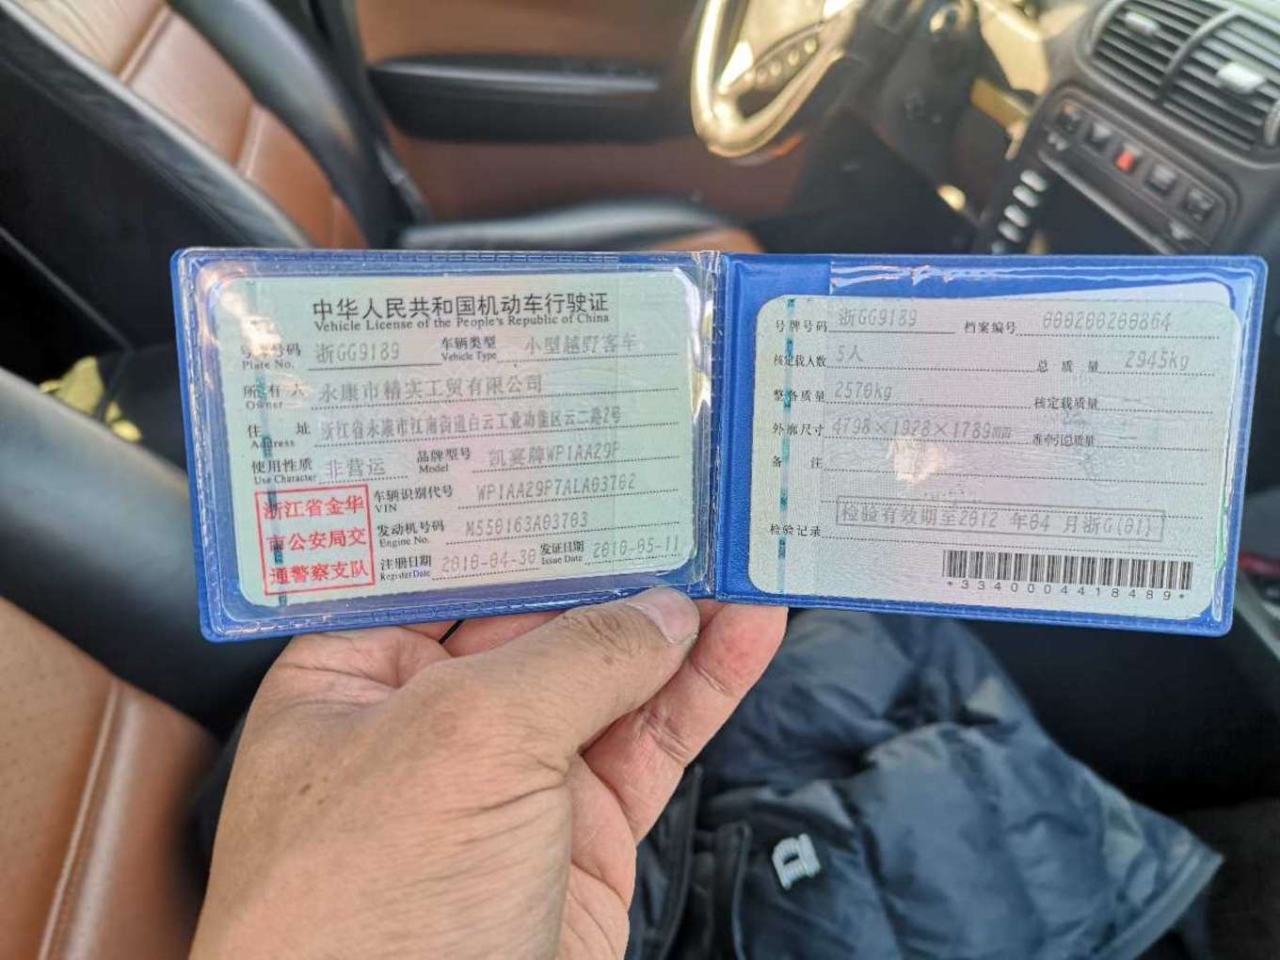 中华人民共和国机动车行驶证
Vehicle License of the People's Republic of China
号牌号码 浙GG9189 车辆类型 小型越野客车
Plate No. Vehicle Type
所有人 永康市精实工贸有限公司
Owner
住址 浙江省永康市江南街道白云工业功能区云二路2号
Address
使用性质 非营运 品牌型号 凯宴牌WP1AA29P
Use Character Model
浙江省金华
市公安局交
通警察支队
车辆识别代号 WP1AA29P7ALA03702
VIN
发动机号码 M550163A03703
Engine No.
注册日期 2010-04-30 发证日期 2010-05-11
Register Date Issue Date
号牌号码 浙GG9189 档案编号 000200200864
核定载人数 5人 总质量 2945kg
整备质量 2570kg 核定载质量 --
外廓尺寸 4798×1928×1789mm 准牵引总质量 --
备注
检验记录 检验有效期至2012 年04 月浙G(01)
*3340004418489*